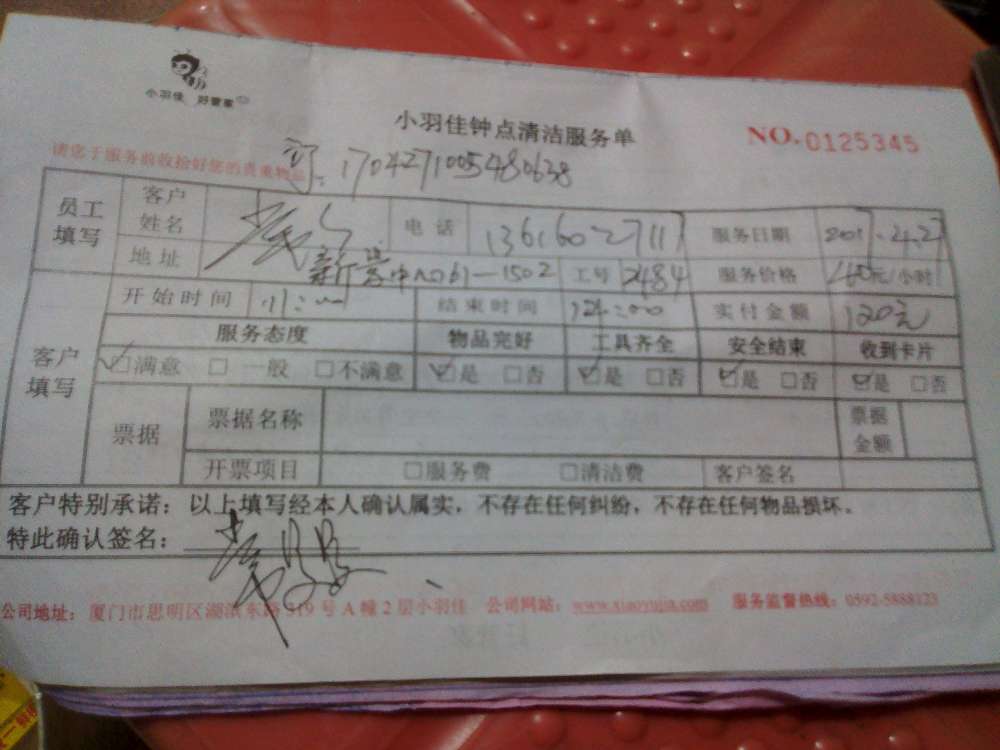 小羽佳 好管家
小羽佳钟点清洁服务单
NO.0125345
请您于服务前收拾好您的贵重物品
1704271005480638
员工填写 客户姓名 电话 13616027117 服务日期 2017.4.27
地址 新景中心 1-1502 工号 2484 服务价格 40元/小时
开始时间 11:00 结束时间 14:00 实付金额 120元
客户填写 服务态度 物品完好 工具齐全 安全结束 收到卡片
☑满意 □一般 □不满意 ☑是 □否 ☑是 □否 ☑是 □否 ☑是 □否
票据 票据名称 票据金额
开票项目 □服务费 □清洁费 客户签名
客户特别承诺：以上填写经本人确认属实，不存在任何纠纷，不存在任何物品损坏。
特此确认签名：
公司地址：厦门市思明区湖滨东路319号A幢2层小羽佳 公司网站：www.xiaoyujia.com 服务监督热线：0592-5888123